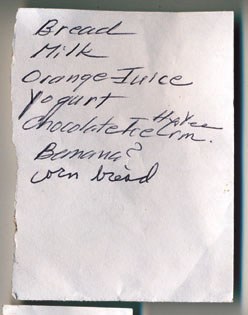 Bread
Milk
Orange Juice
Yogurt
HyVee
Chocolate Ice Crm.
Banana?
corn bread